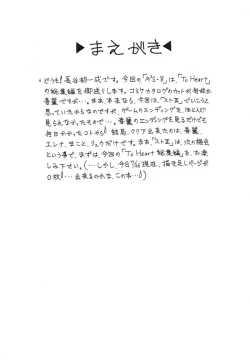 ▶まえがき◀
。どうも！長谷部一成です。今回の「M'S・8」は、「To Heart」
の総集編を御送りします。コミケカタログのカットが何故か
春麗ですが…。まあ、本来なら、今回は「ストⅢ」でいこうと
思っていたからなのですが、ゲームのエンディングを、ほとんど
見られなかったもので…。春麗のエンディングを見るだけでも
何日かかったコトやら！結局、クリア出来たのは、春麗、
エレナ、まこと、リュウだけです。まあ「ストⅢ」は、次の機会
という事で、まずは、今回の「To Heart 総集編」を、お楽
しみ下さい。(…しかし、今日
現在、描き足しページが
0枚！…出来るのかな、この本…！)